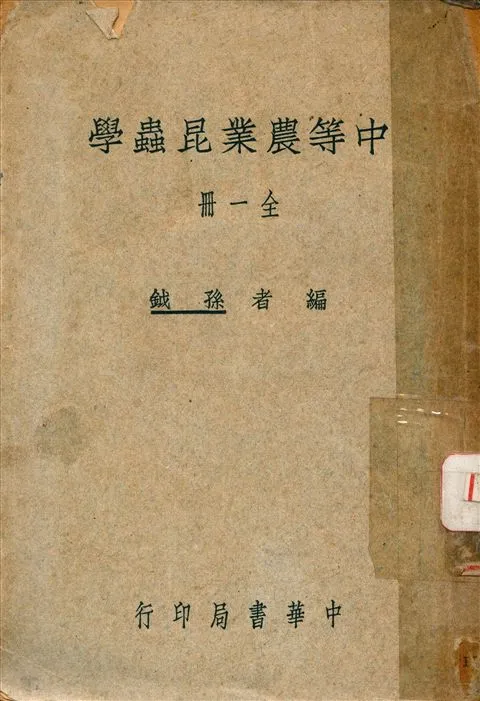 中等農業昆蟲學
全一冊
編者孫鉞
中華書局印行